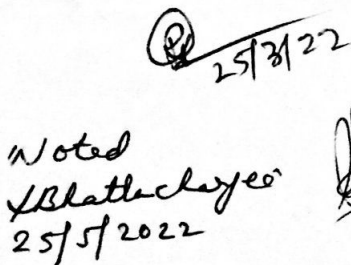 25/3/22
Noted
XBhattacharjee
25/5/2022